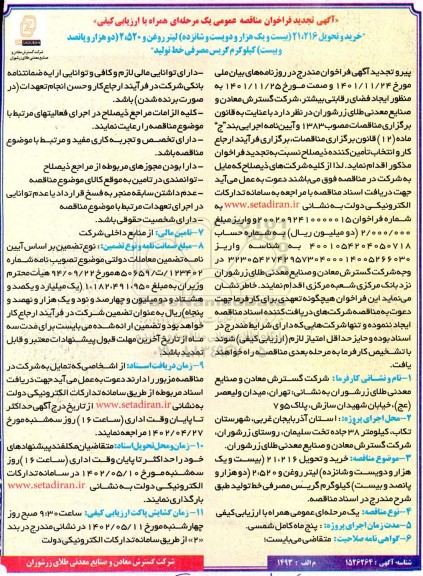 «آگهی تجدید فراخوان مناقصه عمومی یک مرحله‌ای همراه با ارزیابی کیفی»
"خرید و تحویل ۲۱،۲۱۶ (بیست و یک هزار و دویست و شانزده) لیتر روغن و ۲،۵۲۰ (دو هزار و پانصد
و بیست) کیلوگرم گریس مصرفی خط تولید"
شرکت گسترش معادن و
صنایع معدنی طلای زرشوران
پیرو تجدید آگهی فراخوان مندرج در روزنامه‌های بیان ملی
مورخ ۱۴۰۱/۱۱/۲۴ و صمت مورخ ۱۴۰۱/۱۱/۲۵ به
منظور ایجاد فضای رقابتی بیشتر، شرکت گسترش معادن و
صنایع معدنی طلای زرشوران در نظر دارد با عنایت به قانون
برگزاری مناقصات مصوب ۱۳۸۳ و آیین‌نامه اجرایی بند "ج"
ماده (۱۲) قانون برگزاری مناقصات، برگزاری فرآیند ارجاع
کار و انتخاب تأمین کننده ذیصلاح نسبت به تجدید فراخوان
مذکور اقدام نماید. لذا از کلیه شرکت‌های ذیصلاح که مایل
به شرکت در مناقصه فوق می‌باشند دعوت به عمل می‌آید
جهت دریافت اسناد مناقصه با مراجعه به سامانه تدارکات
الکترونیکی دولت به نشانی www.setadiran.ir به
شماره فراخوان ۲۰۰۲۰۹۲۴۱۰۰۰۰۰۱۵ و واریز مبلغ
۲/۰۰۰/۰۰۰ (دو میلیون ریال) به شماره حساب
۴۰۰۱۰۵۴۲۰۴۰۵۰۷۱۸ به شناسه واریز
در وجه شرکت گسترش معادن و صنایع معدنی طلای زرشوران
نزد بانک مرکزی شعبه مرکزی اقدام نمایند. خاطر نشان
می‌نماید این فراخوان هیچگونه تعهدی برای کارفرما جهت
دعوت به مناقصه شرکت‌های دریافت کننده اسناد مناقصه
ایجاد ننموده و تنها شرکت‌هایی که دارای شرایط مندرج در
اسناد بوده و حایز حداقل امتیاز لازم (ارزیابی کیفی) شوند
با تشخیص کارفرما به مرحله بعدی مناقصه راه خواهند
یافت.
۱-نام و نشانی کارفرما: شرکت گسترش معادن و صنایع
معدنی طلای زرشوران به نشانی: تهران، میدان ولیعصر
(عج)، خیابان شهیدان سازش، پلاک ۷۵
۲-محل اجرای پروژه: استان آذربایجان غربی، شهرستان
تکاب، کیلومتر ۳۸ جاده تخت سلیمان، روستای زرشوران،
شرکت گسترش معادن و صنایع معدنی طلای زرشوران.
۳-موضوع مناقصه: خرید و تحویل ۲۱،۲۱۶ (بیست و یک
هزار و دویست و شانزده) لیتر روغن و ۲،۵۲۰ (دو هزار و
پانصد و بیست) کیلوگرم گریس مصرفی خط تولید طبق
شرح مندرج در اسناد مناقصه.
۴-نوع مناقصه: یک مرحله‌ای عمومی همراه با ارزیابی کیفی
۵-مدت زمان اجرای پروژه: پنج ماه کامل شمسی.
۶-گواهی نامه صلاحیت: متقاضی می‌بایست؛
-دارای توانایی مالی لازم و کافی و توانایی ارایه ضمانتنامه
بانکی شرکت در فرآیند ارجاع کار و حسن انجام تعهدات (در
صورت برنده شدن) باشد.
-کلیه الزامات مراجع ذیصلاح در اجرای فعالیتهای مرتبط با
موضوع مناقصه را رعایت نمایند.
-دارای تخصص و تجربه کاری مفید و مرتبط با موضوع
مناقصه باشد.
-دارا بودن مجوزهای مربوطه از مراجع ذیصلاح
-توانمندی در تامین به موقع کالای موضوع مناقصه
-عدم داشتن سابقه منجر به فسخ قرارداد یا عدم توانایی
در اجرای تعهدات مرتبط با موضوع مناقصه
-دارای شخصیت حقوقی باشد.
۷-تامین مالی: از منابع داخلی شرکت
۸-مبلغ ضمانت نامه و نوع تضمین: نوع تضمین بر اساس آیین
نامه تضمین معاملات دولتی موضوع تصویب نامه شماره
۱۲۳۴۰۲/ت۵۰۶۵۹هـ مورخ ۹۴/۰۹/۲۲ هیأت محترم
وزیران به مبلغ ۱،۰۸۲،۴۹۱،۹۵۰ (یک میلیارد و یکصد و
هشتاد و دو میلیون و چهارصد و نود و یک هزار و نهصد و
پنجاه) ریال به عنوان تضمین شرکت در فرآیند ارجاع کار
خواهد بود و تضمین ارائه شده می بایست برای مدت سه
ماه از تاریخ آخرین مهلت قبول پیشنهادات معتبر و قابل
تمدید باشد.
۹-زمان دریافت اسناد: از اشخاصی که تمایل به شرکت در
مناقصه مزبور را دارند دعوت به عمل می آید جهت دریافت
اسناد مربوطه از طریق سامانه تدارکات الکترونیکی دولت
به نشانی www.setadiran.ir از تاریخ درج آگهی حداکثر
تا پایان وقت اداری (ساعت ۱۶) روز سه‌شنبه مورخ
۱۴۰۲/۰۴/۲۷ مراجعه نمایند.
۱۰-زمان و محل تحویل اسناد: متقاضیان مکلفند پیشنهادهای
خود را حداکثر تا پایان وقت اداری (ساعت ۱۶) روز
سه‌شنبه مورخ ۱۴۰۲/۰۵/۱۰ در سامانه تدارکات
الکترونیکی دولت به نشانی www.setadiran.ir
بارگذاری نمایند.
۱۱-زمان گشایش پاکت ارزیابی کیفی: ساعت ۹:۳۰ صبح روز
چهارشنبه مورخ ۱۴۰۲/۰۵/۱۱ در نشانی مندرج در بند
«۲» از طریق سامانه تدارکات الکترونیکی دولت
شناسه آگهی: ۱۵۲۶۲۶۴ م الف: ۱۴۹۳
شرکت گسترش معادن و صنایع معدنی طلای زرشوران